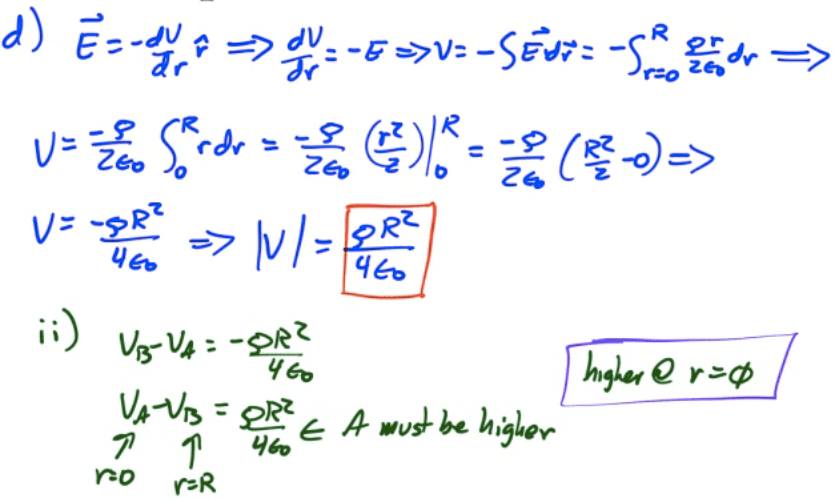 d) E⃗ = -dV/dr r̂ ⇒ dV/dr = -E ⇒ V = -∫E⃗dr⃗ = -∫_{r=0}^{R} ρr/2ε₀ dr ⇒
V = -ρ/2ε₀ ∫₀^R r dr = -ρ/2ε₀ (r²/2)|₀^R = -ρ/2ε₀ (R²/2 - 0) ⇒
V = -ρR²/4ε₀ ⇒ |V| = ρR²/4ε₀
ii) V_B - V_A = -ρR²/4ε₀
higher @ r = φ
V_A - V_B = ρR²/4ε₀ ∈ A must be higher
↑ ↑
r=0 r=R